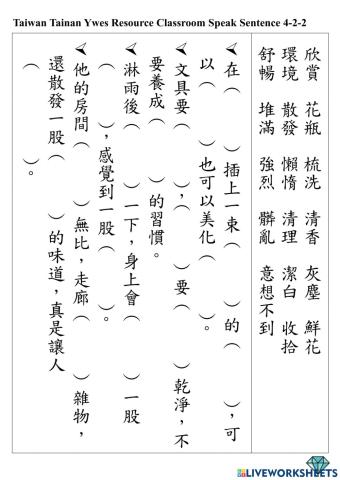 Taiwan Tainan Ywes Resource Classroom Speak Sentence 4-2-2
欣賞 花瓶 梳洗 清香 灰塵 鮮花
環境 散發 懶惰 清理 潔白 收拾
舒暢 堆滿 強烈 髒亂 意想不到
➢在( )插上一束( )的( ),可
以( )也可以美化( )。
➢文具要( ),( )要( )乾淨,不
要養成( )的習慣。
➢淋雨後( )一下,身上會( )一股
( ),感覺到一股( )。
➢他的房間( )無比,走廊( )雜物,
還散發一股( )的味道,真是讓人
( )。
LIVEWORKSHEETS